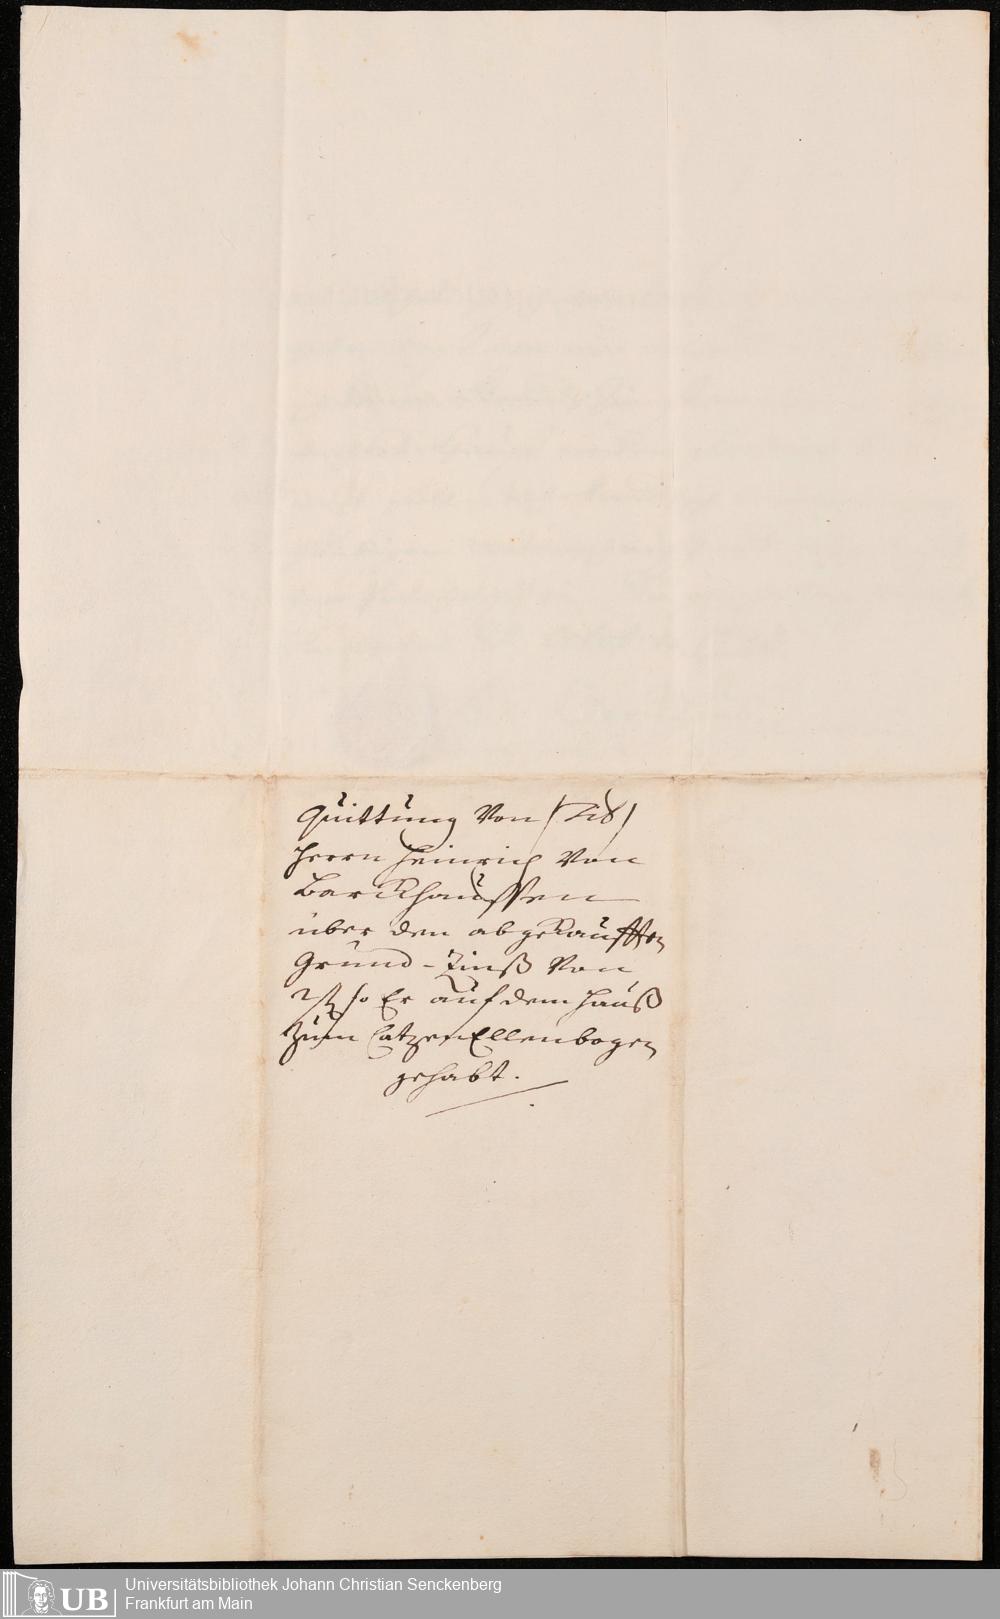 Quittung Von (Tit)
Herrn Heinrich Von
Barckhaussen
über den abgekaufften
Grund-Zinß Von
2 so Er auf dem Hauß
Zum CatzenEllenbogen
gehabt.
UB
Universitätsbibliothek Johann Christian Senckenberg
Frankfurt am Main